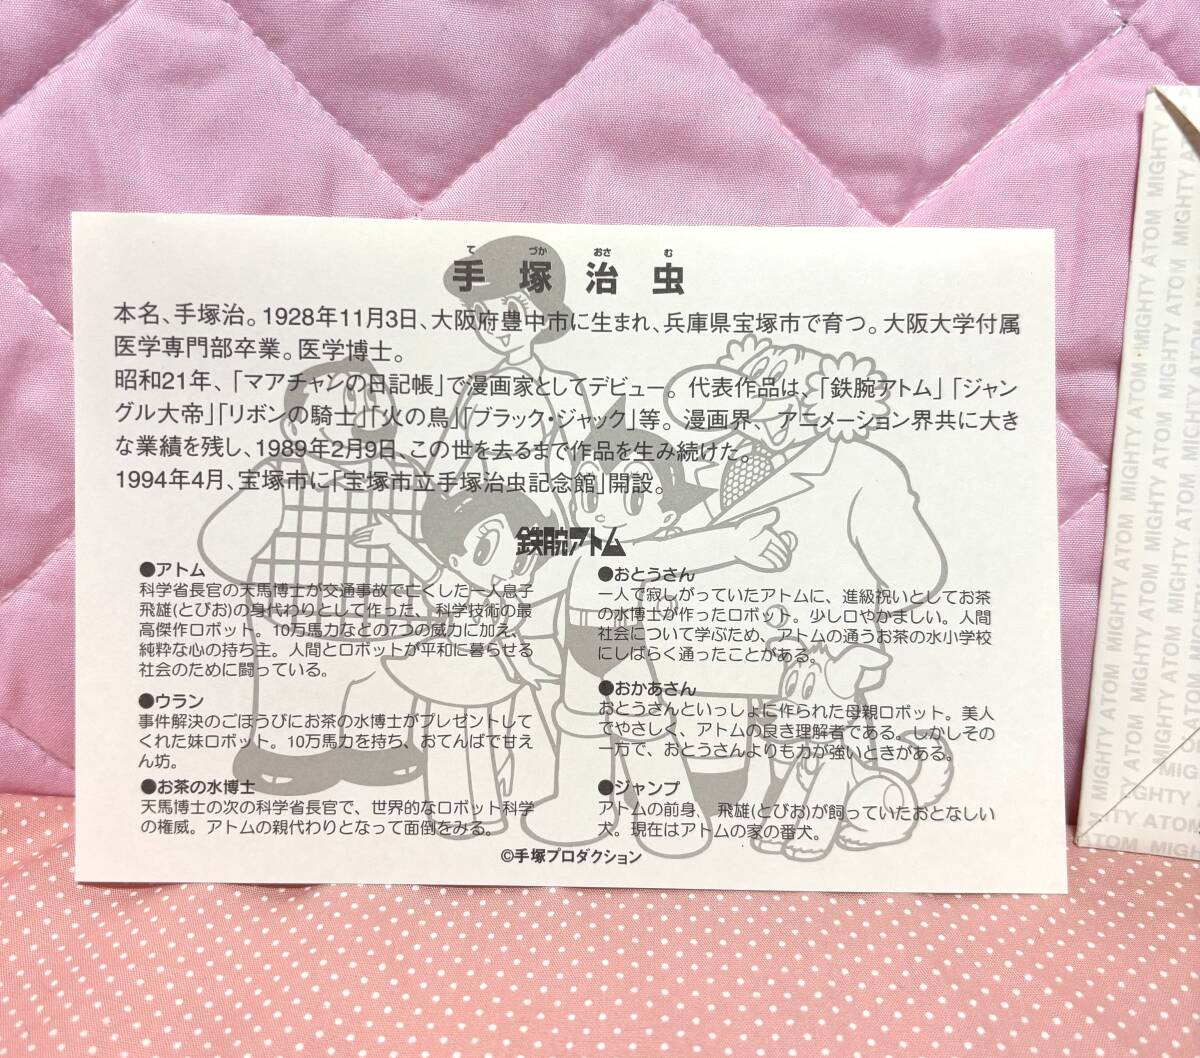 て づか おさ む
手塚治虫
本名、手塚治。1928年11月3日、大阪府豊中市に生まれ、兵庫県宝塚市で育つ。大阪大学付属
医学専門部卒業。医学博士。
昭和21年、「マアチャンの日記帳」で漫画家としてデビュー。代表作品は、「鉄腕アトム」「ジャン
グル大帝」「リボンの騎士」「火の鳥」「ブラック・ジャック」等。漫画界、アニメーション界共に大き
な業績を残し、1989年2月9日、この世を去るまで作品を生み続けた。
1994年4月、宝塚市に「宝塚市立手塚治虫記念館」開設。
鉄腕アトム
●アトム
科学省長官の天馬博士が交通事故で亡くした一人息子
飛雄(とびお)の身代わりとして作った、科学技術の最
高傑作ロボット。10万馬力などの7つの威力に加え、
純粋な心の持ち主。人間とロボットが平和に暮らせる
社会のために闘っている。
●ウラン
事件解決のごほうびにお茶の水博士がプレゼントして
くれた妹ロボット。10万馬力を持ち、おてんばで甘え
ん坊。
●お茶の水博士
天馬博士の次の科学省長官で、世界的なロボット科学
の権威。アトムの親代わりとなって面倒をみる。
●おとうさん
一人で寂しがっていたアトムに、進級祝いとしてお茶
の水博士が作ったロボット。少し口やかましい。人間
社会について学ぶため、アトムの通うお茶の水小学校
にしばらく通ったことがある。
●おかあさん
おとうさんといっしょに作られた母親ロボット。美人
でやさしく、アトムの良き理解者である。しかしその
一方で、おとうさんよりも力が強いときがある。
●ジャンプ
アトムの前身、飛雄(とびお)が飼っていたおとなしい
犬。現在はアトムの家の番犬。
©手塚プロダクション
MIGHTY ATOM MIGHTY ATOM MIGHTY
MIGHTY ATOM MIGHTY ATOM